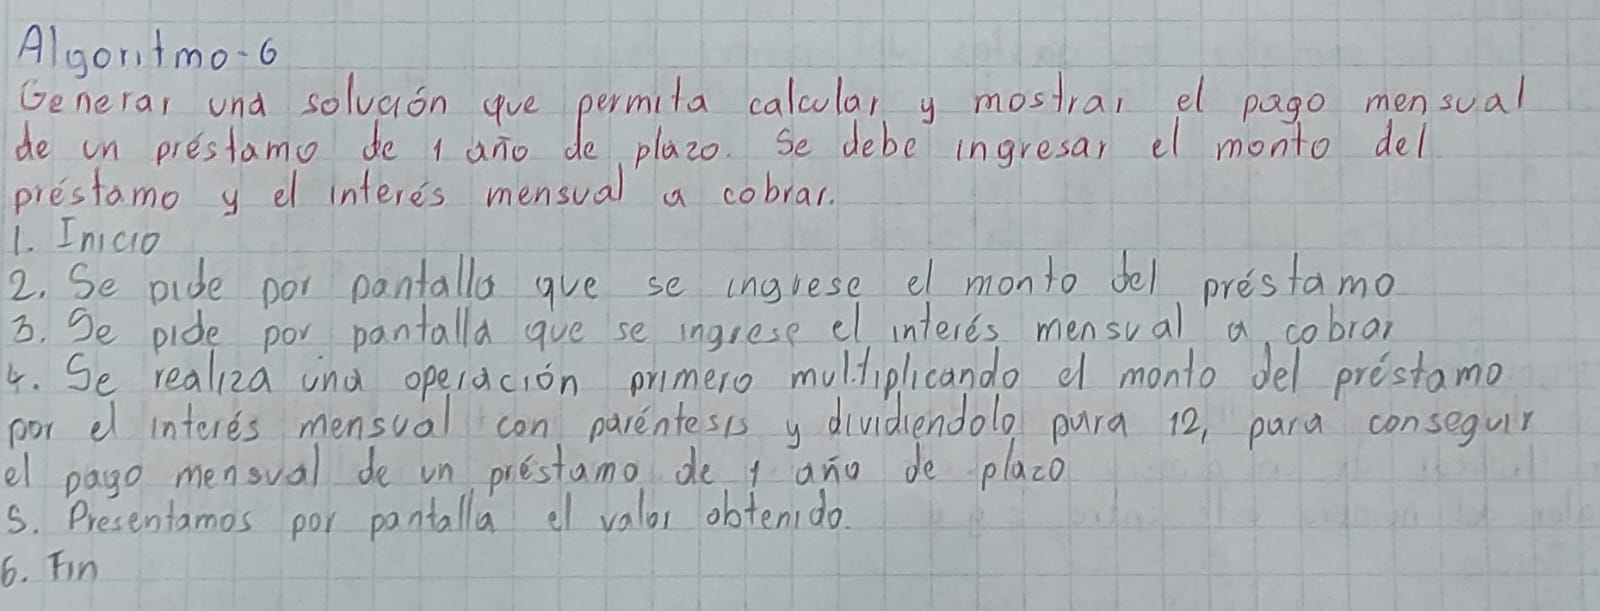 Algoritmo-6
Generar una solución que permita calcular y mostrar el pago mensual
de un préstamo de 1 año de plazo. Se debe ingresar el monto del
préstamo y el interés mensual a cobrar.
1. Inicio
2. Se pide por pantalla que se ingrese el monto del préstamo
3. Se pide por pantalla que se ingrese el interés mensual a cobrar
4. Se realiza una operación primero multiplicando el monto del préstamo
por el interés mensual con paréntesis y dividiendolo para 12, para conseguir
el pago mensual de un préstamo de 1 año de plazo
5. Presentamos por pantalla el valor obtenido.
6. Fin